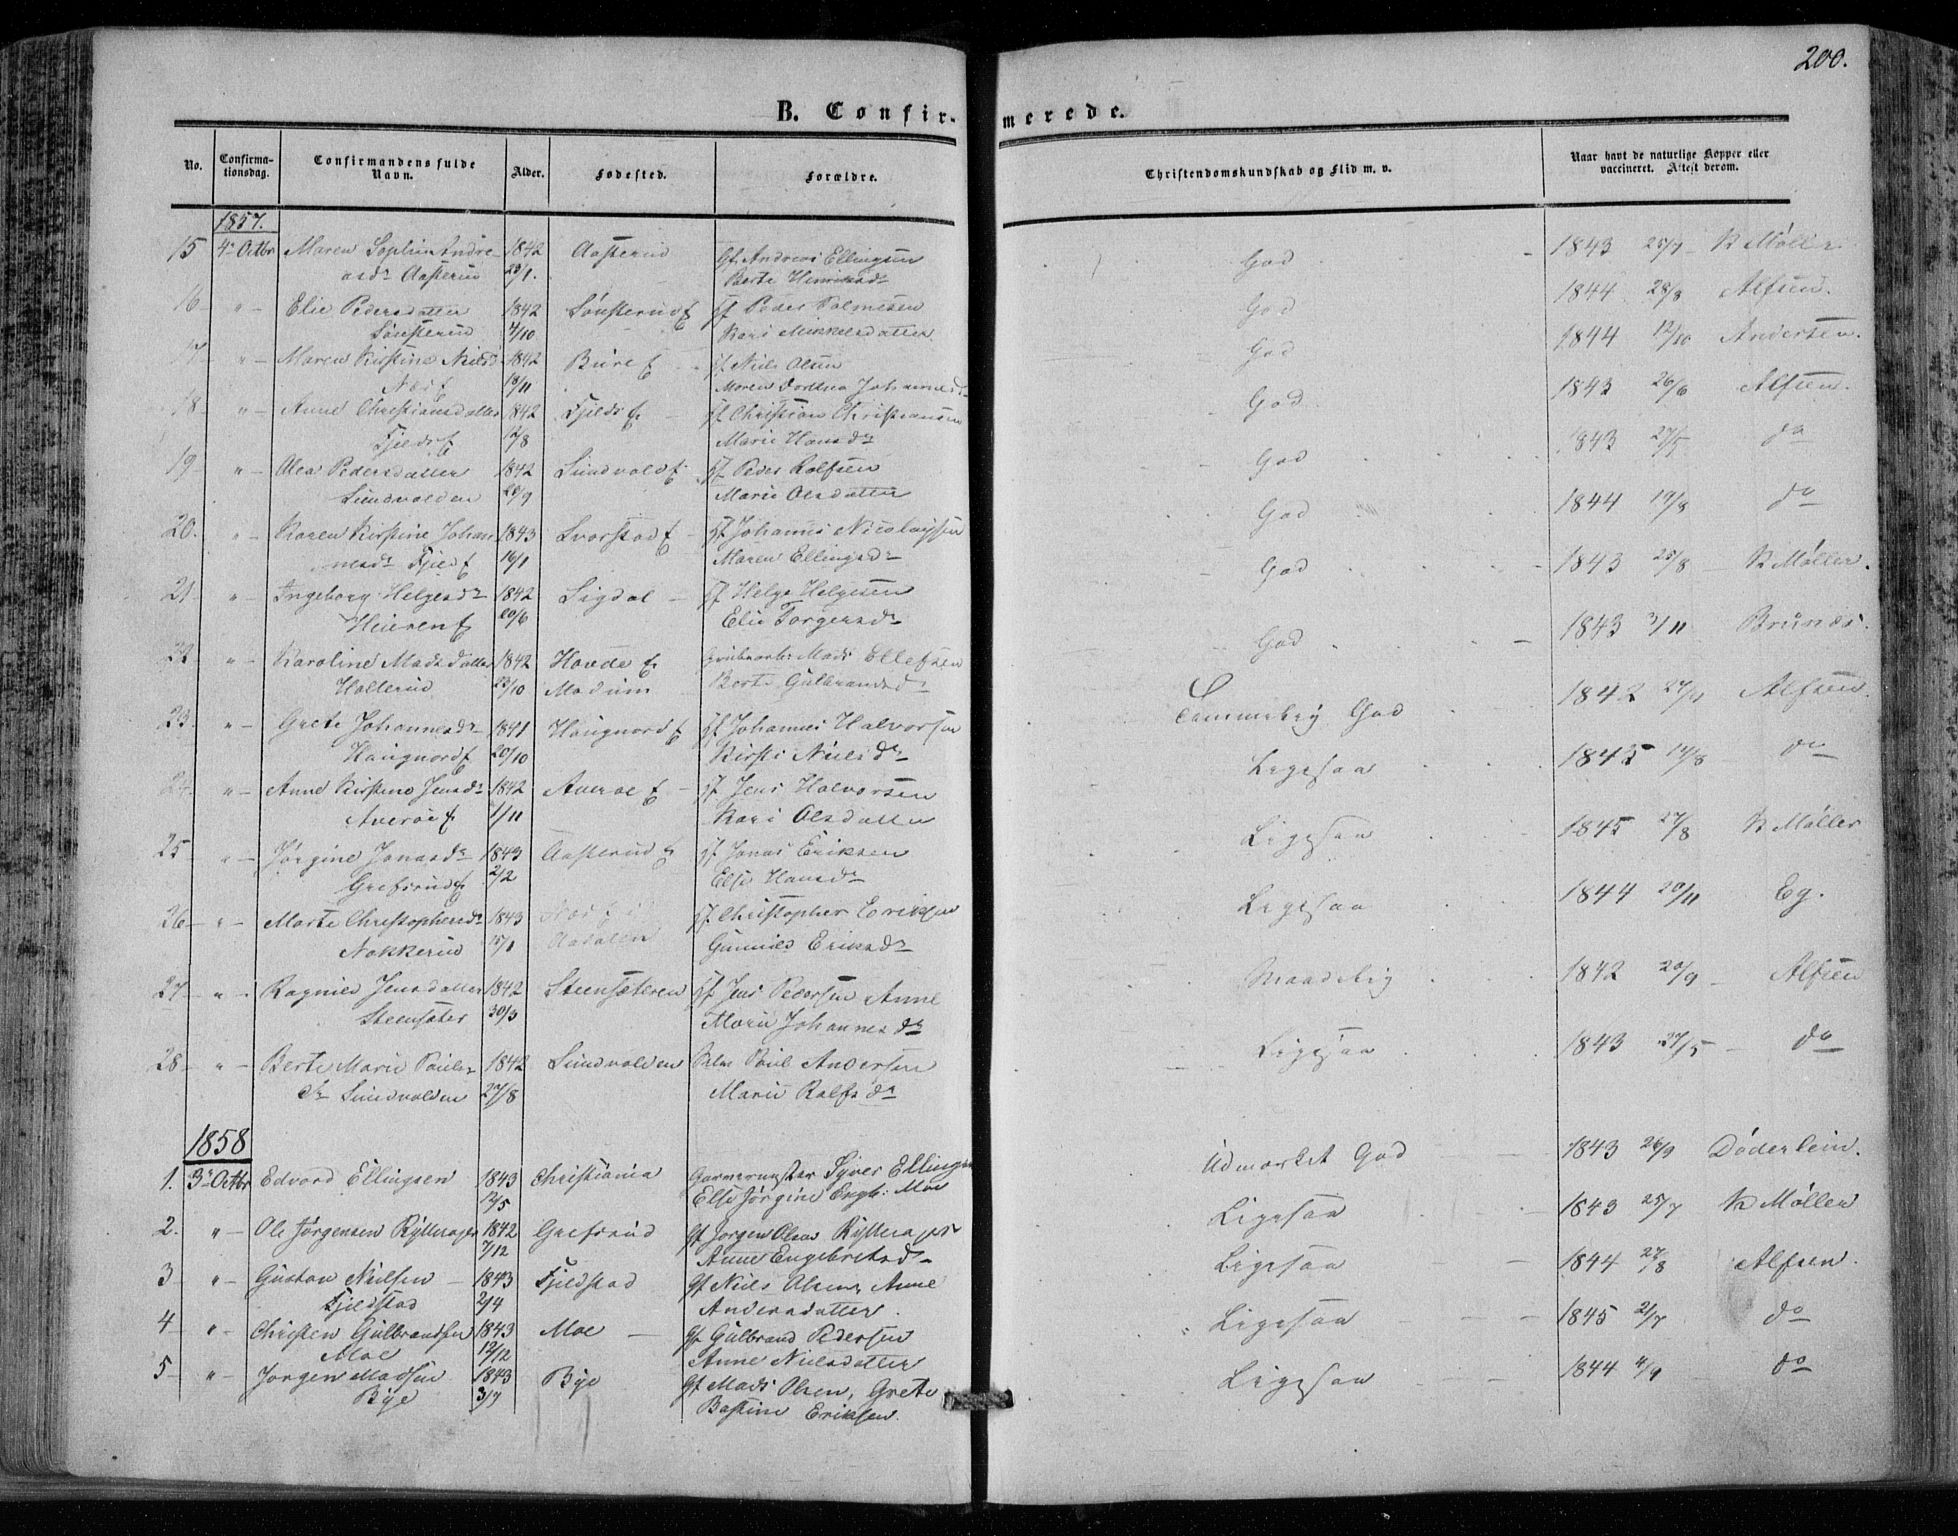 200.
B. Confirmerede.
No. Confirmationsdag. Confirmandens fulde Navn. Alder. Fødested. Forældre. Christendomskundskab og Flid m. v. Naar havt de naturlige Kopper eller vaccineret. Attest derom.
1857.
15 4de Octbr Maren Sophie Andre- 1842 Aasterud Gf Andreas Ellingsen God 1843 25/7 K Møller
asdr Aasterud 23/1. Berte Henriksdr
16 " Elie Pedersdatter 1842 Sønsterud E gf Peder Palmesen God 1844 28/8 Alfsen.
Sønsterud 4/10 Kari Mikkelsdatter
17 " Maren Kirstine Nielsd 1842 Bure E gf Niels Olsen God 1844 12/10 Andersen.
Næs E 13/11 Maren Dorthea Johannesd
18 " Anne Christiansdatter 1842 Fjelds E gf Christian Christiansen God 1843 26/6 Alfsen.
Fjelds E 12/8 Marie Hansdr
19 " Olea Pedersdatter 1842 Sundvold E gf Peder Rolfsen God 1843 27/5 do
Sundvolden 20/9 Marie Olsdatter
20. " Karen Kirstine Johan 1843 Svarstad E gf Johannes Nicolaysen God 1844 19/8 do
nesdr Fjeld E 16/1 Maren Ellingsdr
21 " Ingeborg Helgesdr 1842 Sigdal gf Helge Helgesen God 1843 25/8 K Møller.
Heieren E 20/6 Elie Torgersdr
22 " Karoline Madsdatter 1842 Hovde E Mads Ellefsen God 1843 3/11 Brunæs.
Hollerud 23/10 Modum Berte Gulbrandsdr
23. " Grete Johannesdr 1841 Haugnord E gf Johannes Halvorsen Temmelig God 1842 27/9 Alfsen.
Haugnord E 20/10 Kirsti Nielsdr
24 " Anne Kirstine Jensdr 1842 Averøe E gf Jens Halvorsen Ligesaa 1845 14/8 do
Averøe E 1/11 Kari Olsdatter
25 " Jørgine Jonasdr 1843 Aasterud E gf Jonas Eriksen Ligesaa 1845 27/8 K Møller
Grefsrud E 2/2 Else Hansdr
26 " Marte Christophersdr 1843 Næs E i gf Christopher Eriksen Ligesaa 1844 20/11 Eg.
Nakkerud 25/1 Aadalen Gunnild Eriksdr
27 " Ragnild Jensdatter 1842 Steensæteren gf Jens Pedersen Anne Maadelig 1842 20/9 Alfsen
Steensæter 30/3 Marie Johannesdr
28 " Berte Marie Pauls- 1842 Sundvolden Paul Andersen Ligesaa 1843 27/5 do
dr Sundvolden 27/8 Marie Rolfsdr
1858
1. 3de Octbr Edvard Ellingsen 1843 Christiania Garvermester Syver Ellingsen Udmærket God 1843 26/9 Døderlein.
12/5 Else Jørgine Engh: Moe
2. " Ole Jørgensen Rytterager 1842 Grefsrud gf Jørgen Olsen Rytterager Ligesaa 1843 25/7 K Møller
7/12 Anne Engebretsdr
3 " Gustav Nielsen 1843 Fjeldstad gf Niels Olsen, Anne Ligesaa 1844 27/8 Alfsen.
Fjeldstad 2/4 Andersdatter.
4 " Christen Gulbrandsen 1843 Moe gf Gulbrand Pedersen Ligesaa 1845 21/7 do
Moe 12/12 Anne Nielsdatter
5 " Jørgen Madsen 1843 Bye gf Mads Olsen, Grete Ligesaa 1844 4/9 do
Bye 3/7 Bastine Eriksen.